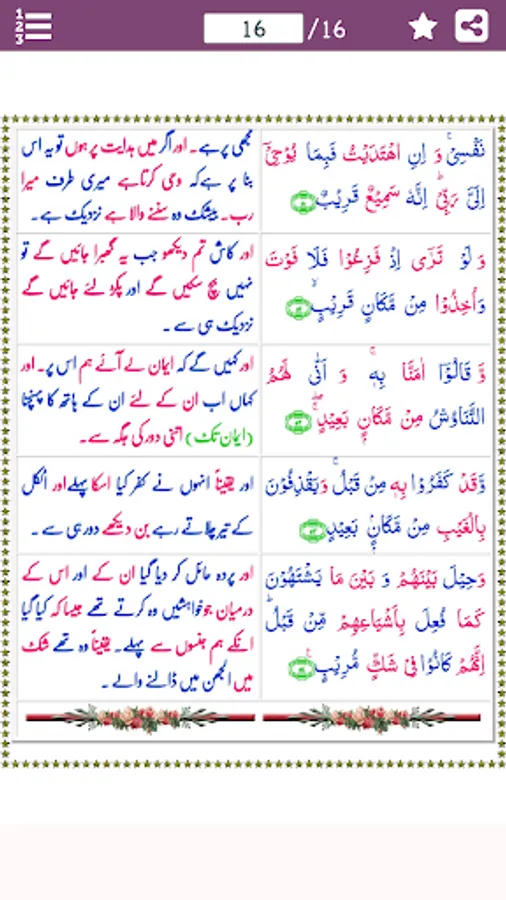 1
2
3
16
/16
نَفْسِیْ ۚ وَ اِنِ اهْتَدَیْتُ فَبِمَا یُوْحِیْۤ
اِلَیَّ رَبِّیْ ؕ اِنَّهٗ سَمِیْعٌ قَرِیْبٌ
مجھی پر ہے۔ اور اگر میں ہدایت پر ہوں تو یہ اس
بنا پر ہےکہ وحی کرتاہے میری طرف میرا
رب۔ بیشک وہ سننے والا ہے نزدیک ہے۔
وَ لَوْ تَرٰۤی اِذْ فَزِعُوْا فَلَا فَوْتَ
وَاُخِذُوْا مِنْ مَّكَانٍ قَرِیْبٍ ۙ
اور کاش تم دیکھو جب یہ گھبرا جائیں گے تو
نہیں بچ سکیں گے اور پکڑ لئے جائیں گے
نزدیک ہی سے ۔
وَّ قَالُوْۤا اٰمَنَّا بِهٖ ۚ وَ اَنّٰی لَهُمُ
التَّنَاوُشُ مِنْ مَّكَانٍۭ بَعِیْدٍ ۚۖ
اور کہیں گے کہ ایمان لے آئے ہم اس پر۔ اور
کہاں اب ان کے لئے ان کے ہاتھ کا پہنچنا
(ایمان تک) اتنی دور کی جگہ سے۔
وَّقَدْ كَفَرُوْا بِهٖ مِنْ قَبْلُ ۚ وَیَقْذِفُوْنَ
بِالْغَیْبِ مِنْ مَّكَانٍۭ بَعِیْدٍ
اور یقیناً انہوں نے کفر کیا اسکا پہلےاور اٹکل
کے تیر چلاتے رہے بن دیکھے دور ہی سے ۔
وَحِیْلَ بَیْنَهُمْ وَ بَیْنَ مَا یَشْتَهُوْنَ
كَمَا فُعِلَ بِاَشْیَاعِهِمْ مِّنْ قَبْلُ ؕ
اِنَّهُمْ كَانُوْا فِیْ شَكٍّ مُّرِیْبٍ
اور پردہ حائل کر دیا گیا ان کے اور اس کے
درمیان جوخواہشیں وہ کرتے تھے جیسا کہ کیا گیا
انکے ہم جنسوں سے پہلے۔ یقیناً وہ تھے شک
میں الجھن میں ڈالنے والے ۔